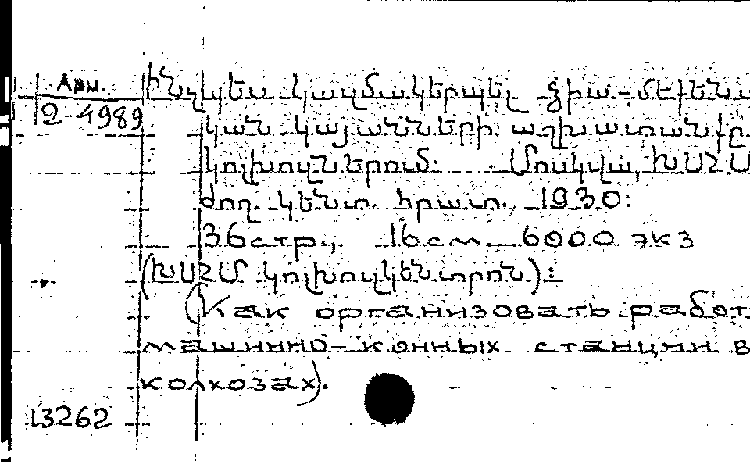 Арм.
2-4989
Ինչպես կազմակերպել ձիա-մեքենա
կան կայանների աշխատանքը
կոլխոզներում: Մոսկվա, ԽՍՀՄ
ժող. կենտ. հրատ., 1930:
36стр., 16см 6000 экз
(ԽՍՀՄ կոլխոզկենտրոն):
(Как организовать работ
машинно-конных станции в
колхозах).
13262